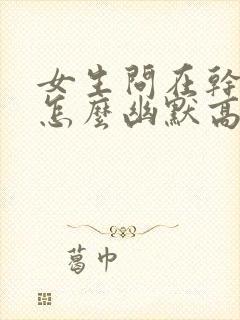 女生問在幹
怎麼幽默高
葛巾